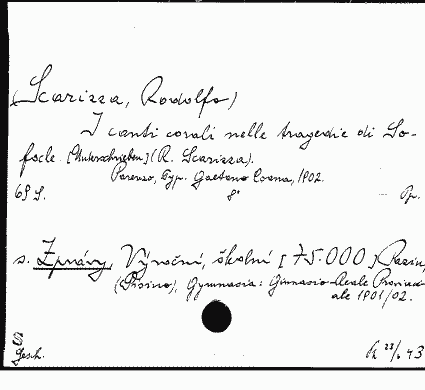 (Scarizza, Rodolfo)
I canti corali nelle tragedie di So-
focle. [Unterschrieben] (R. Scarizza).
Parenzo, Typ. Gaetano Coana, 1902.
69 S. 8° Op.
s. Zprávy, Výroční, školní [75.000]
Gymnasia: Ginnasio Reale
ale 1901/02.
Gesch. 43